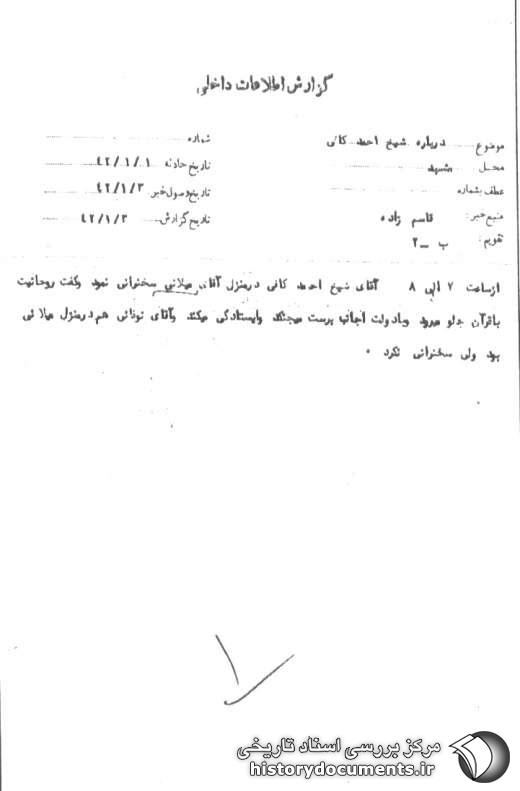 گزارش اطلاعات داخلی
موضوع درباره شیخ احمد کافی
شماره
محل مشهد
تاریخ حادثه ۴۲/۱/۱
عطف بشماره
تاریخ وصول خبر ۴۲/۱/۳
منبع خبر: قاسم زاده
تاریخ گزارش ۴۲/۱/۳
تقویم: ب ـ ۲
از ساعت ۷ الی ۸ آقای شیخ احمد کافی در منزل آقای میلانی سخنرانی نمود وگفت روحانیت
باقرآن جلو میرود وبا دولت اجانب پرست میجنگد وایستادگی میکند وآقای نوغانی هم در منزل میلانی
بود ولی سخنرانی نکرد .
مرکز بررسی اسناد تاریخی
historydocuments.ir